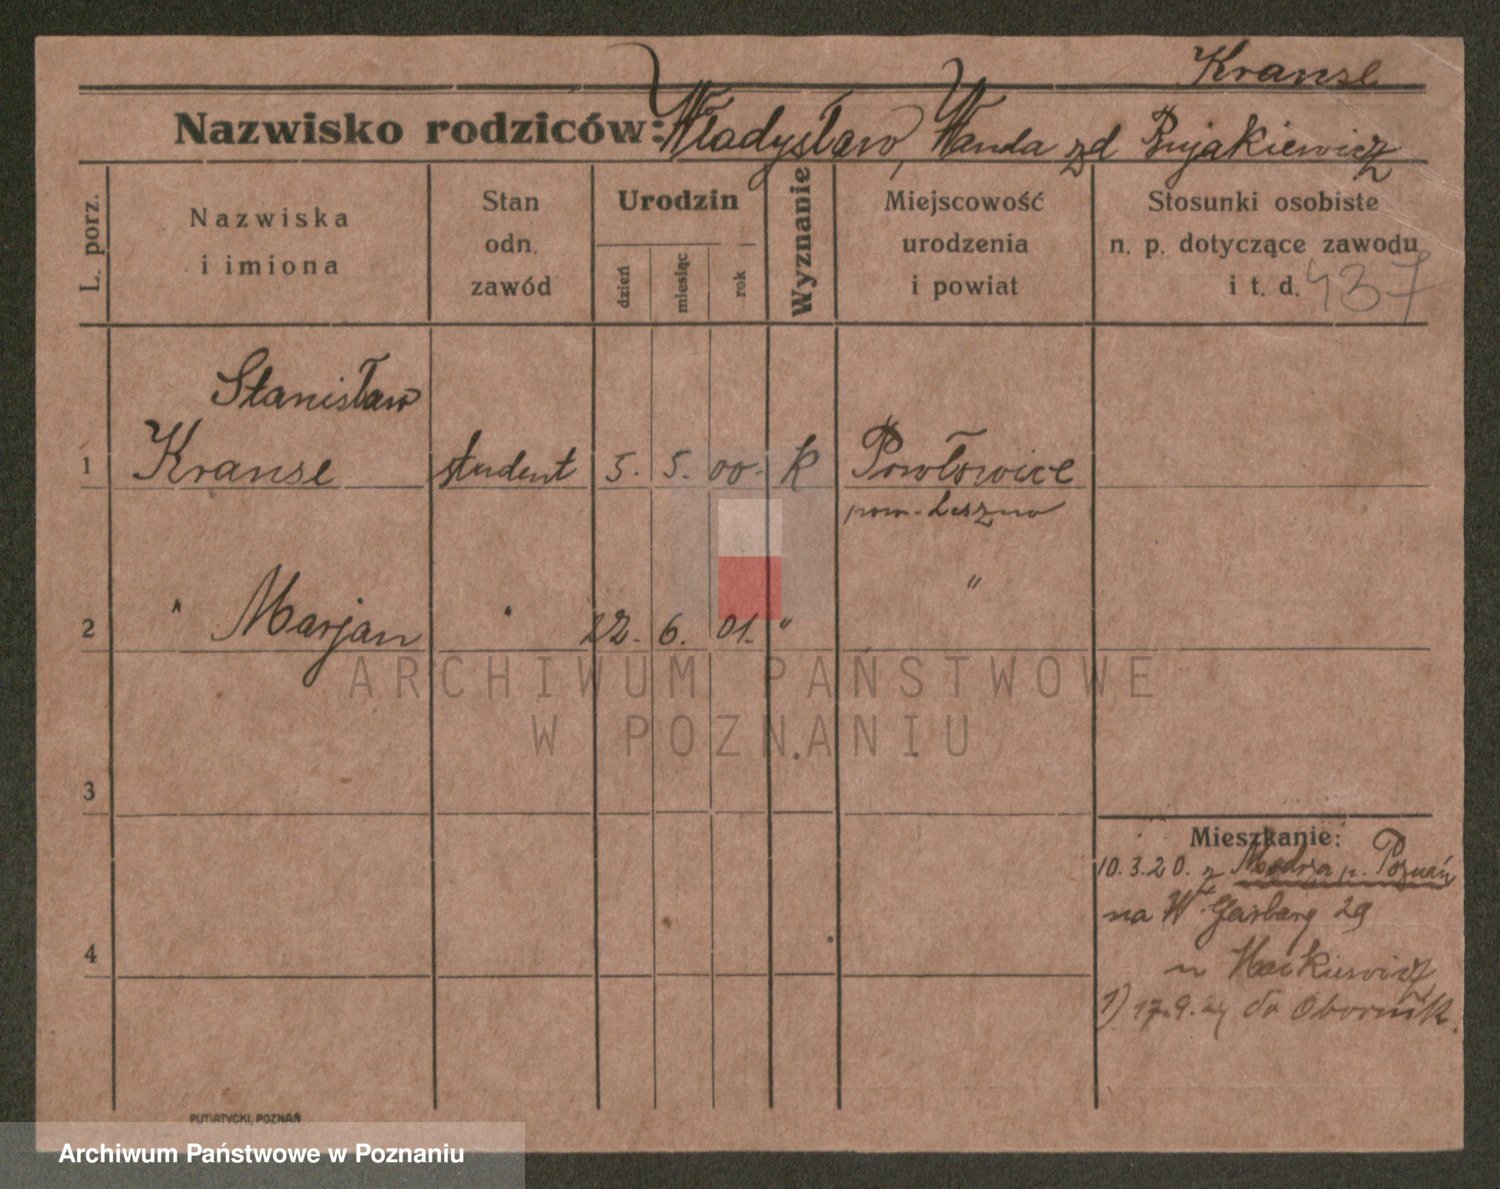 Kranse
Nazwisko rodziców: Władysław, Wanda zd Bujakiewicz
L. porz.
Nazwiska
i imiona
Stan
odn.
zawód
Urodzin
dzień
miesiąc
rok
Wyznanie
Miejscowość
urodzenia
i powiat
Stosunki osobiste
n. p. dotyczące zawodu
i t. d. 437
Stanisław
1 Kranse student 5. 5. 00. k Powłowice
pow. Leszno
2 " Marjan " 22. 6. 01. " "
3
4
Mieszkanie:
10.3.20. z p. Poznań
na W. Garbary 29
u
1) 17.9. do Obornik.
PUTIATYCKI, POZNAŃ
ARCHIWUM PAŃSTWOWE
W POZNANIU
Archiwum Państwowe w Poznaniu